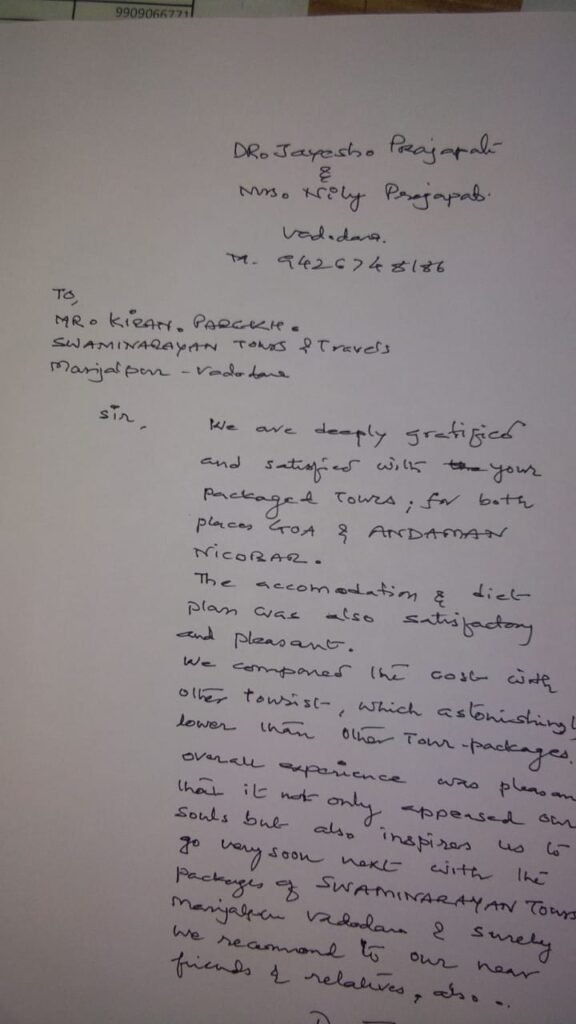 9909066771
DR. Jayesh. Prajapati
&
Mrs. Nily Prajapati.
Vadodara.
M. 9426748186
TO,
MR. KIRAN. PAREKH.
SWAMINARAYAN TOURS & Travels
Manjalpur - Vadodara
Sir,
We are deeply gratified
and satisfied with your
packaged Tours; for both
places GOA & ANDAMAN
NICOBAR.
The accomodation & diet
plan was also satisfactory
and pleasant.
We compared the cost with
other tourist, which astonishingl
lower than other Tour-packages.
overall experience was pleasan
that it not only appeased our
souls but also inspires us to
go very soon next with the
packages of SWAMINARAYAN TOURS
Manjalpur Vadodara & surely
we recommond to our near
friends & relatives, also..